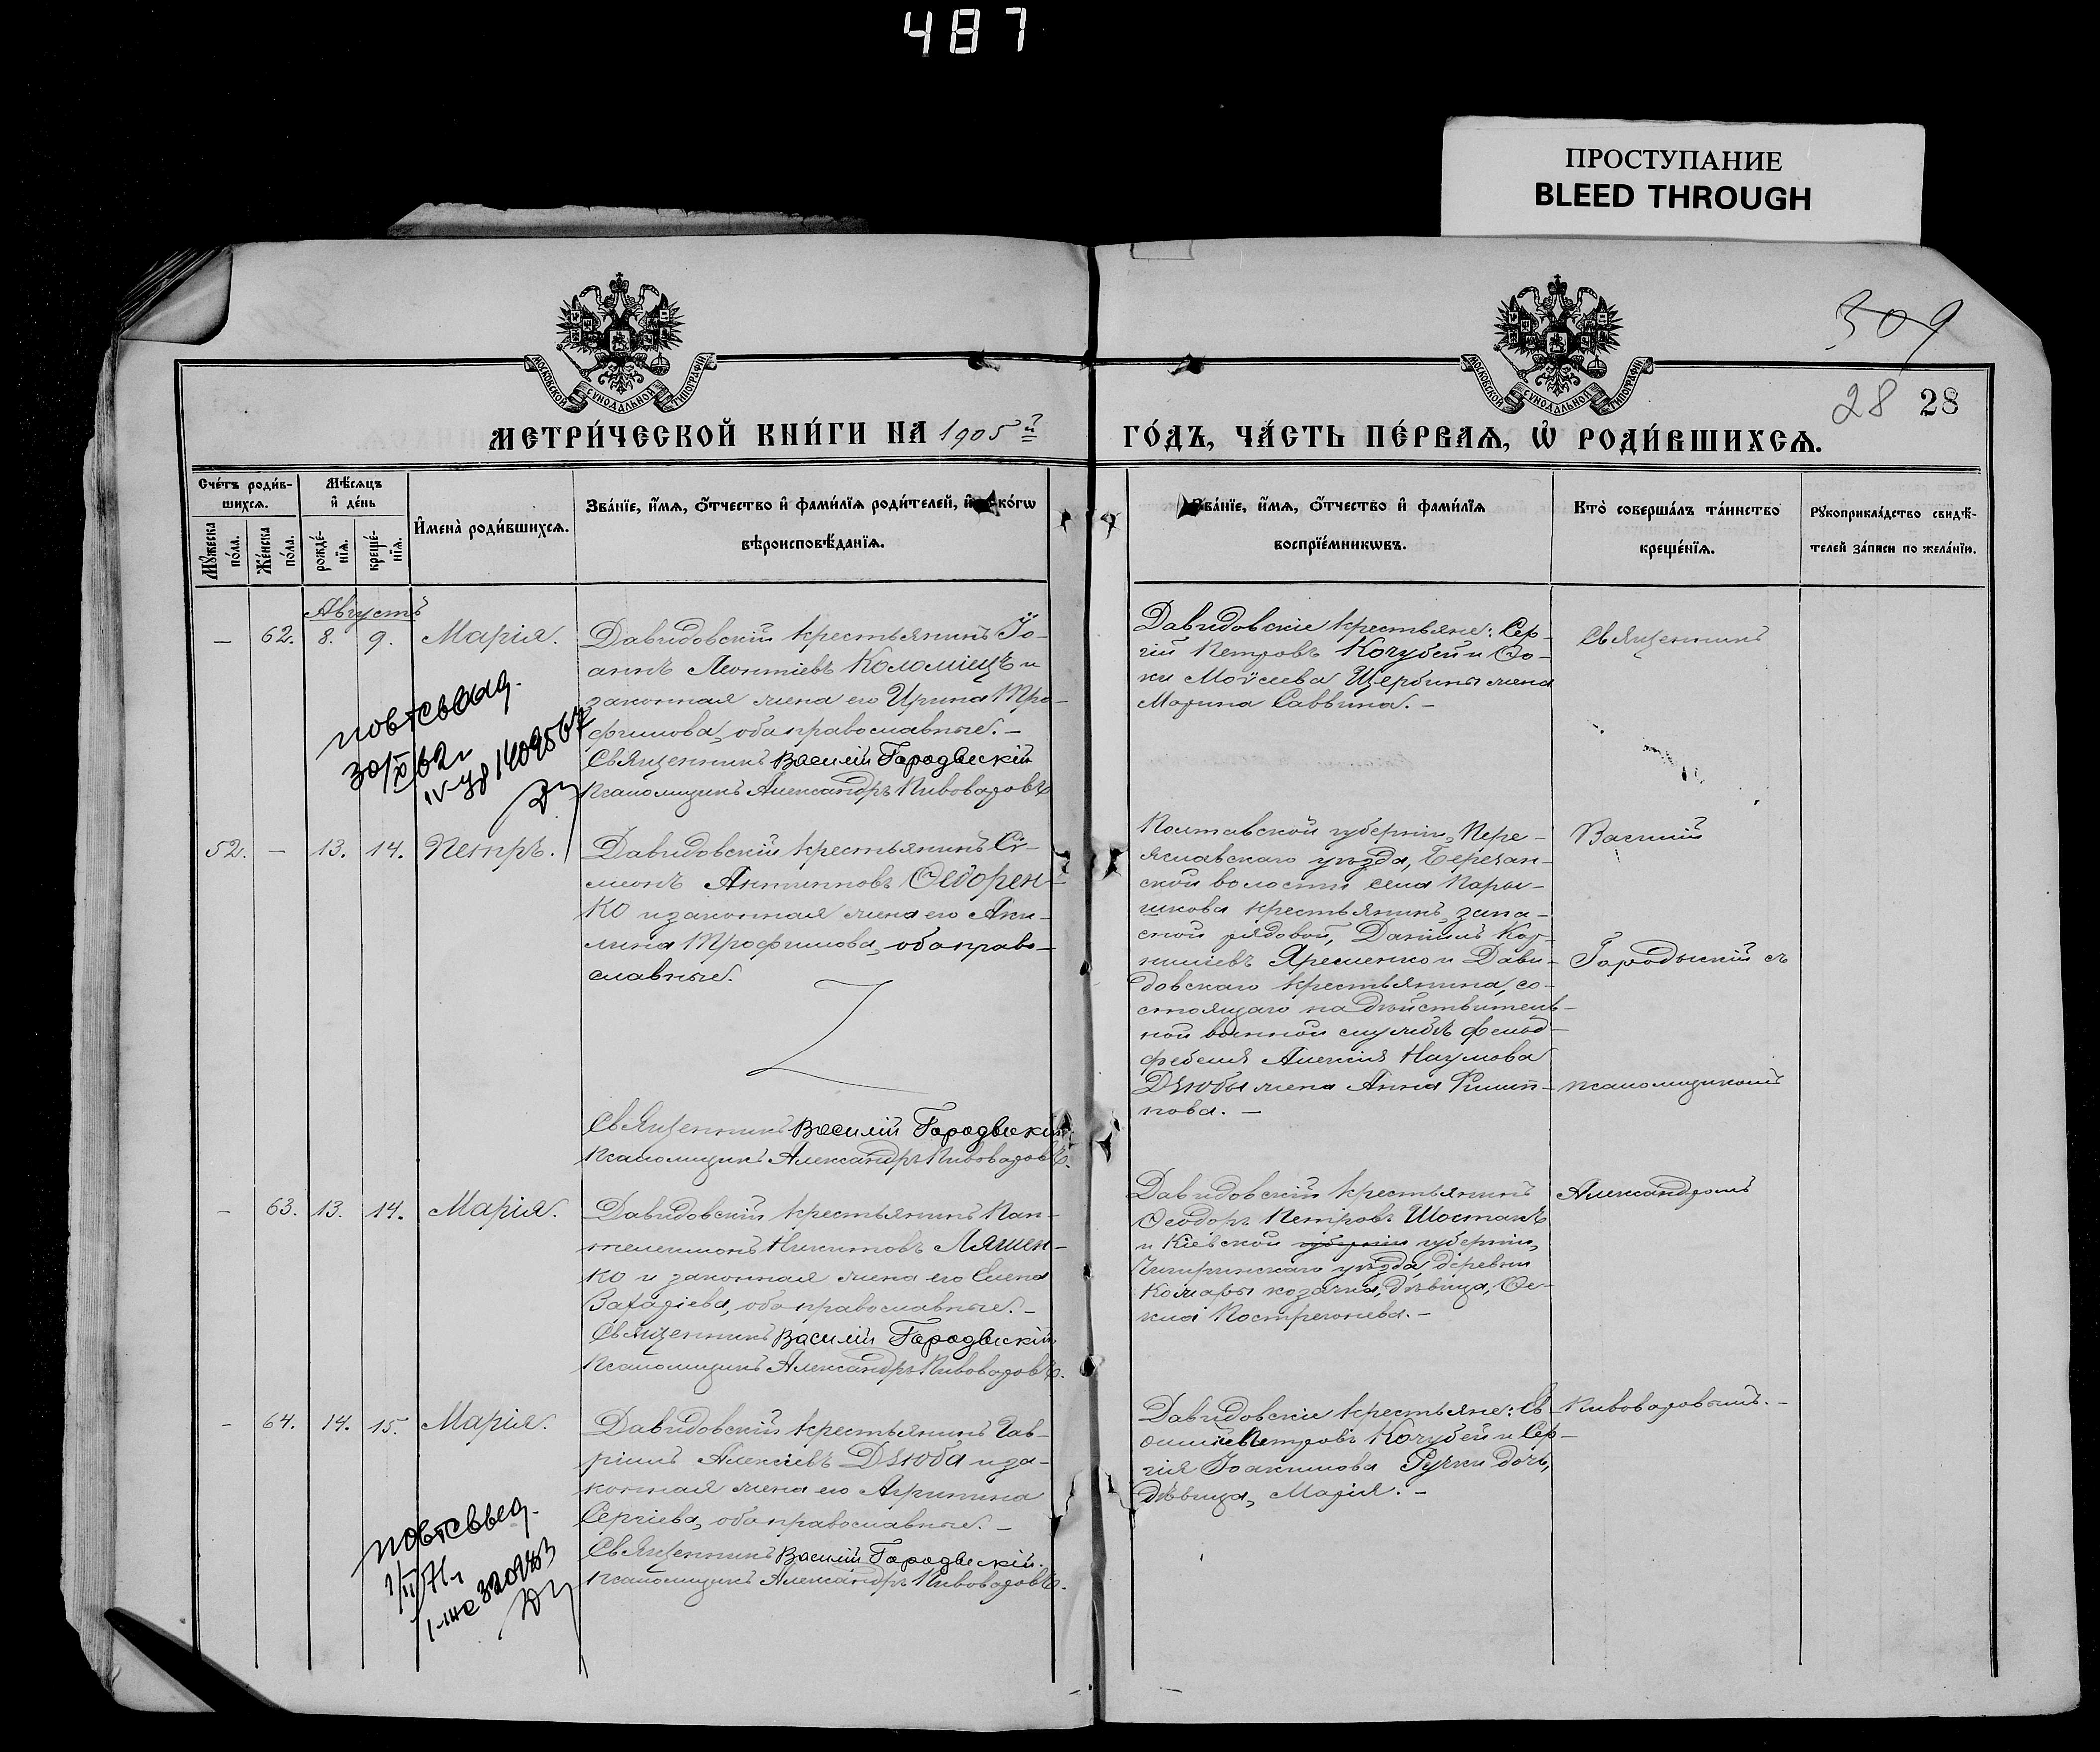 487
ПРОСТУПАНИЕ
BLEED THROUGH
309
28 28
МОСКОВСКОЙ СѴНОДАЛЬНОЙ ТИПОГРАФІИ
МОСКОВСКОЙ СѴНОДАЛЬНОЙ ТИПОГРАФІИ
МЕТРИ́ЧЕСКОЙ КНИ́ГИ НА 1905й
ГО́ДЪ, ЧА́СТЬ ПЕ́РВАѦ, Ѡ҆ РОДИ́ВШИХСѦ.
Сче́тъ роди́в-
шихсѧ.
Мꙋ́жеска по́ла.
Же́нска по́ла.
Мѣ́сѧцъ
и҆ де́нь
рожде́-
нїѧ.
креще́-
нїѧ.
И҆мена̀ роди́вшихсѧ.
Зва́нїе, и҆́мѧ, ѻ҆́тчество и҆ фами́лїѧ роди́телей, и҆ ко́гѡ
вѣроисповѣ́данїѧ.
Зва́нїе, и҆́мѧ, ѻ҆́тчество и҆ фами́лїѧ
воспрїе́мникѡвъ.
Кто̀ соверша́лъ та́инство
креще́нїѧ.
Рꙋкоприкла́дство свидѣ́-
телей за́писи по жела́нїю.
Августъ
— 62. 8. 9. Марія.
Давидовскій крестьянинъ Іо-
аннъ Леонтіевъ Коломіецъ и
законная жена его Ирина Тро-
фимова, оба православные. —
Священникъ Василій Городыскій
Псаломщикъ Александръ Пивоваровъ
Давидовскіе крестьяне: Сер-
гій Петровъ Кочубей и Ѳо-
ки Моѵсеева Щербины жена
Марина Саввина. —
Священникъ
повт свид.
30/X 62г
52. — 13. 14. Петръ.
Давидовскій крестьянинъ Сѵ-
меонъ Антиповъ Ѳедорен-
ко и законная жена его Аки-
лина Трофимова, оба право-
славные.
Священникъ Василій Городыскій
Псаломщикъ Александръ Пивоваровъ.
Полтавской губерніи, Пере-
яславскаго уѣзда, Березан-
ской волости села Пары-
шкова крестьянинъ, запа-
сной рядовой, Даніилъ Кор-
нилиевъ Яременко и Дави-
довскаго крестьянина, со-
стоящаго на дѣйствитель-
ной военной службѣ фельд-
фебеля Алексія Наумова
Дзюбы жена Анна Филип-
пова. —
Василій
Городыскій съ
псаломщикомъ
— 63. 13. 14. Марія.
Давидовскій крестьянинъ Пан-
телеимонъ Никитовъ Ляшен-
ко и законная жена его Елена
Захаріева, оба православные. —
Священникъ Василій Городыскій
Псаломщикъ Александръ Пивоваровъ.
Давидовскій крестьянинъ
Ѳеодоръ Петровъ Шостакъ
и Кіевской губерніи губерніи,
Чигиринскаго уѣзда, деревни
козачка, дѣвица, Ѳе-
кла —
Александромъ
- 64. 14. 15. Марія.
Давидовскій крестьянинъ Гав-
ріилъ Алексіевъ Дзюба и за-
конная жена его Агрипина
Сергіева, оба православные. —
Священникъ Василій Городыскій.
Псаломщикъ Александръ Пивоваровъ.
Давидовскіе крестьяне:
Петровъ Кочубей и Сер-
гія Іоакимова дочь,
дѣвица, Марія. —
Пивоваровымъ. —